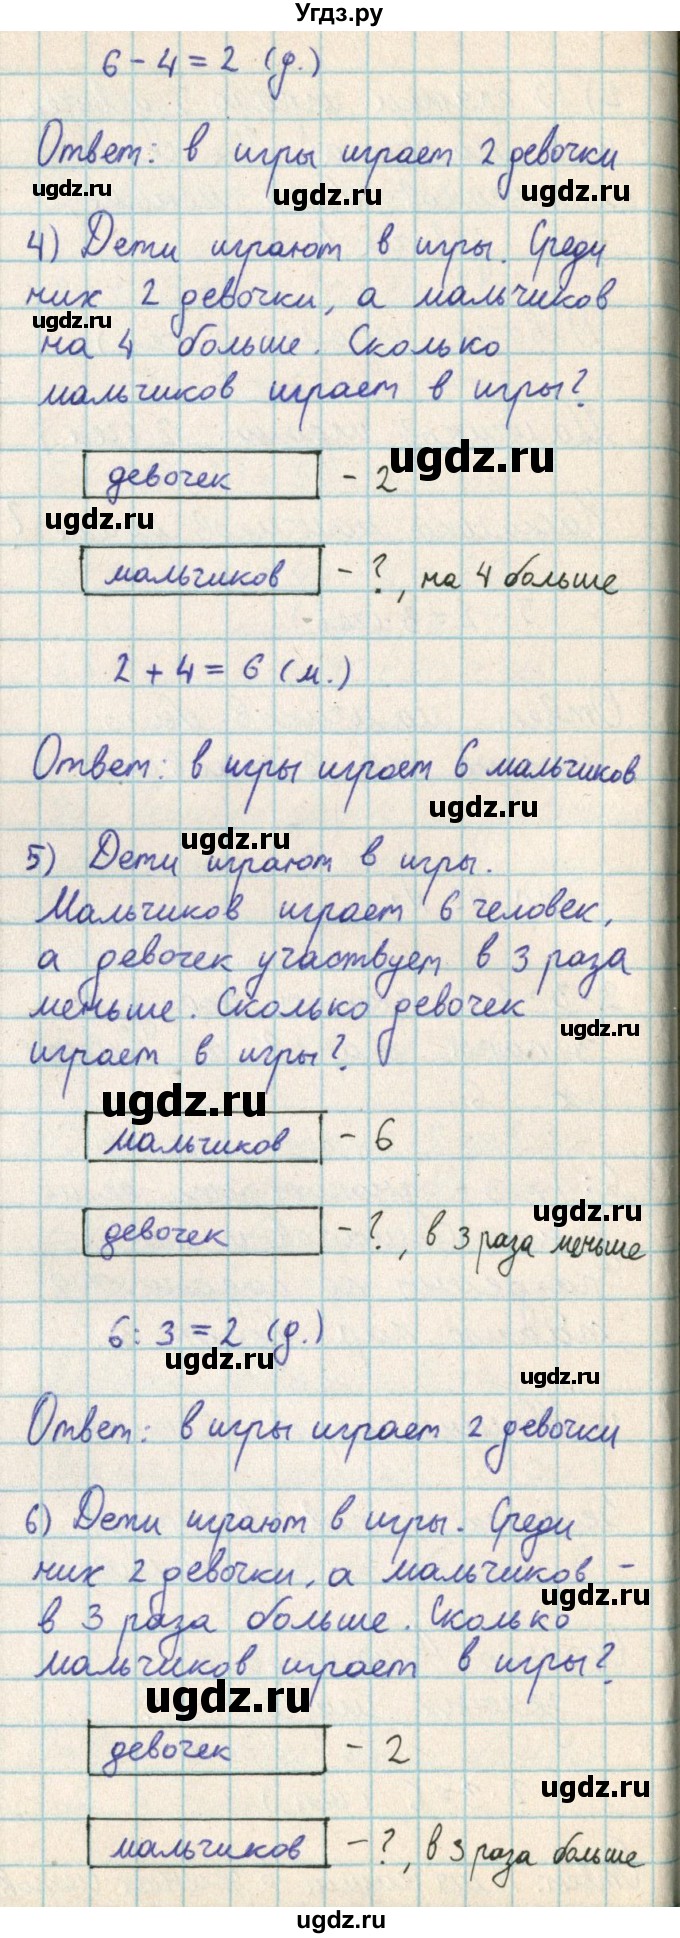 Угдз.ру
6 - 4 = 2 (д.)
Ответ: в игры играет 2 девочки
ugdz.ru ugdz.ru ugdz.ru
4) Дети играют в игры. Среди
них 2 девочки, а мальчиков
ugdz.ru
на 4 больше. Сколько
мальчиков играет в игры?
девочек - 2
ugdz.ru
ugdz.ru
мальчиков - ?, на 4 больше
2 + 4 = 6 (м.)
Ответ: в игры играет 6 мальчиков
ugdz.ru
ugdz.ru
5) Дети играют в игры.
Мальчиков играет 6 человек,
а девочек участвует в 3 раза
меньше. Сколько девочек
ugdz.ru
играет в игры?
ugdz.ru
мальчиков - 6
ugdz.ru
девочек - ?, в 3 раза меньше
6 : 3 = 2 (д.)
ugdz.ru
ugdz.ru
Ответ: в игры играет 2 девочки
6) Дети играют в игры. Среди
них 2 девочки, а мальчиков -
ugdz.ru
в 3 раза больше. Сколько
мальчиков играет в игры?
ugdz.ru
девочек - 2
ugdz.ru
мальчиков - ?, в 3 раза больше
ugdz.ru